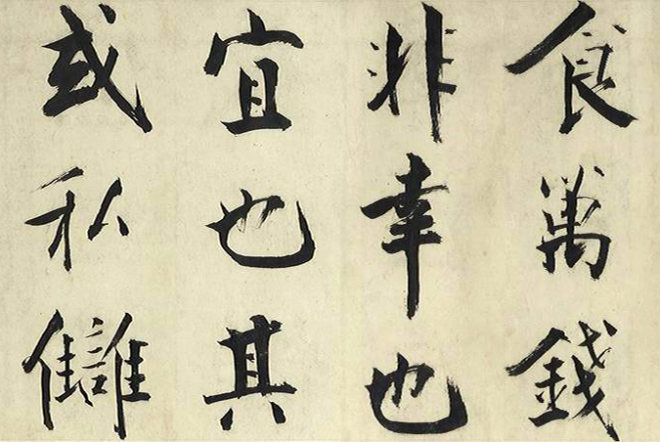 食萬錢
非幸也
宜也其
或私讎